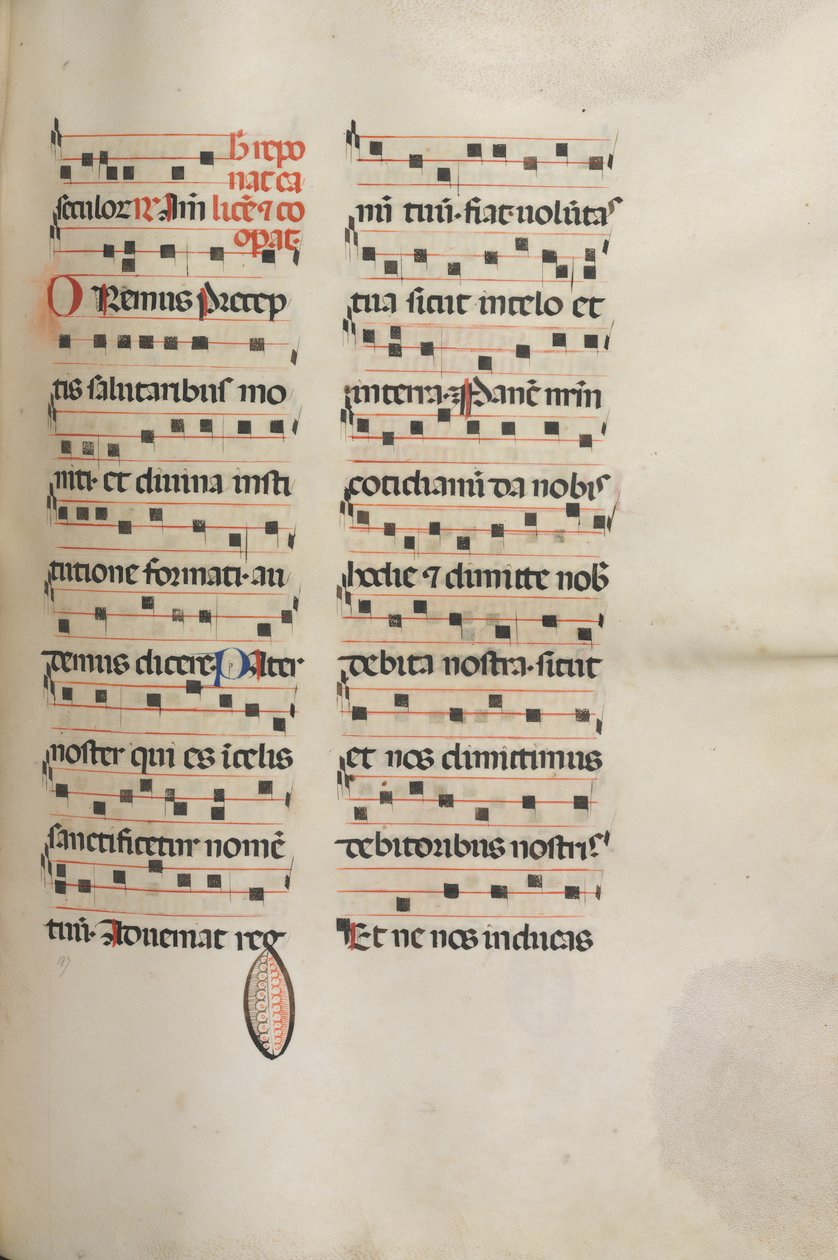 h̄ repo
nat ca
seculoꝝ ℟. Am̄ licē ⁊ co
opat.
ORemus Precep
tis salutaribus mo
niti. et diuina insti
tutione formati. au
demus dicere. PAter
noster qui es ī celis
sanctificetur nomē
tuū. Adueniat reg
187
nū tuū. fiat uolūtas
tua sicut in celo et
in terra. Panē nr̄m
cotidianū da nobis
hodie ⁊ dimitte nob̄
debita nostra. sicut
et nos dimittimus
debitoribus nostris
Et ne nos inducas